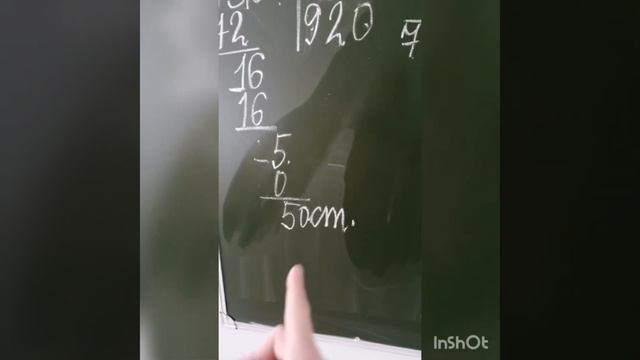 72 920 7
16
16
- 5.
0
5 ост.
InShOt